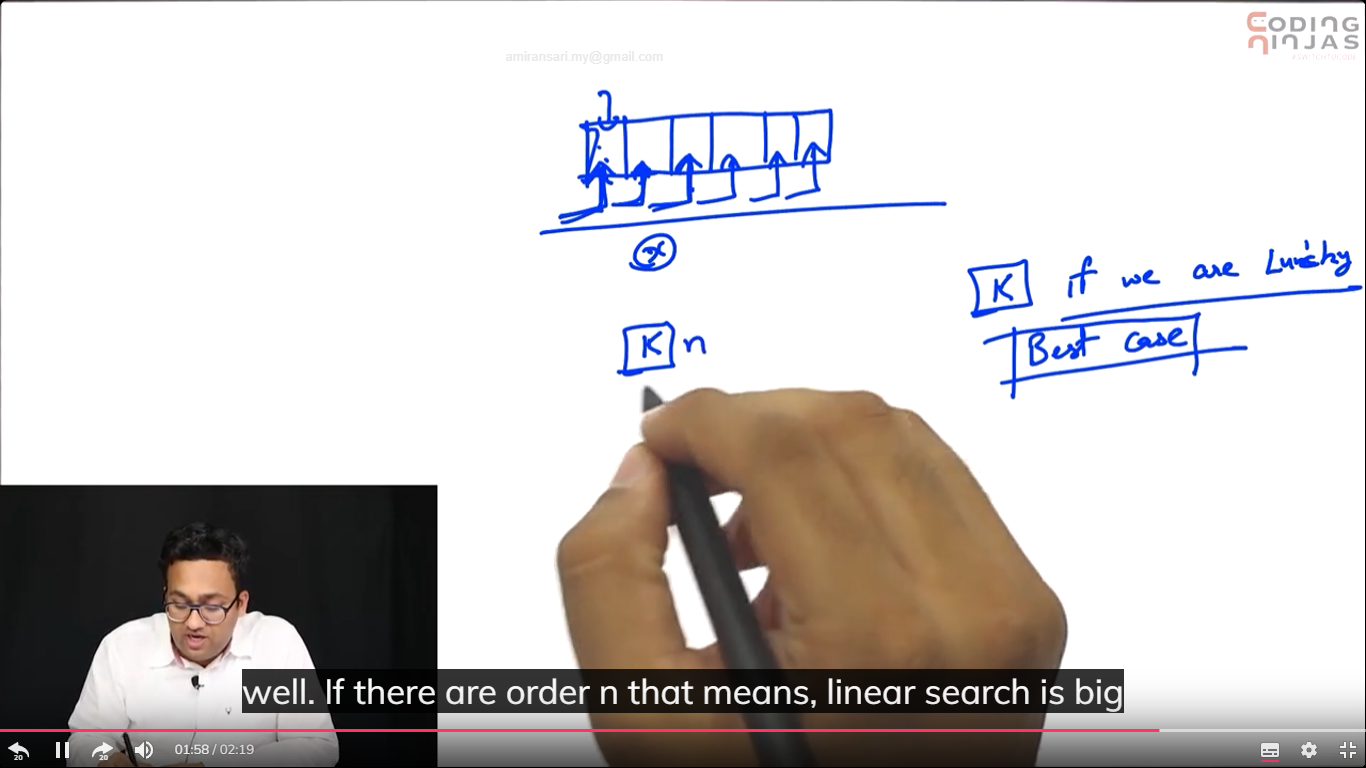 CODING
NINJAS
#SWITCHTOCODE
amiransari.my@gmail.com
x
K if we are Lucky
Best case
K n
well. If there are order n that means, linear search is big
20
20
01:58 / 02:19